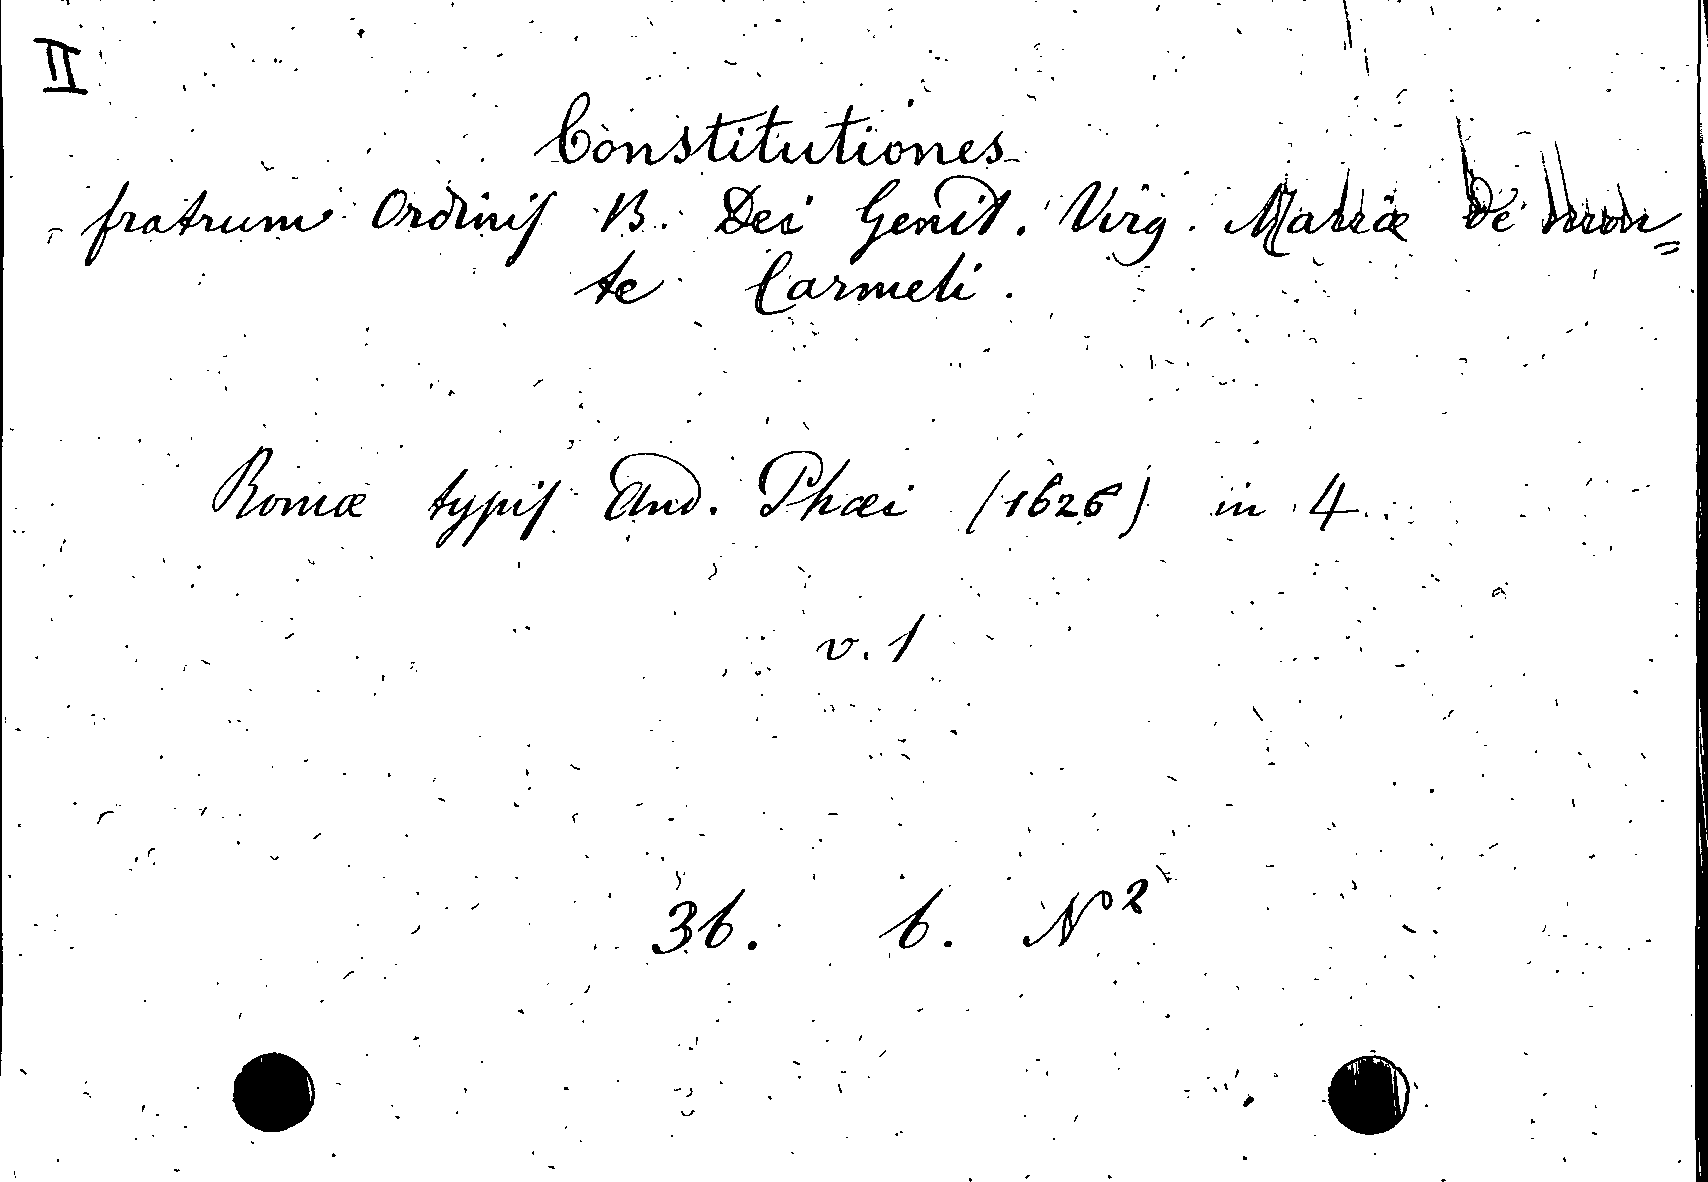 II
Constitutiones
fratrum Ordinis B. Dei Genit. Virg. Mariæ de mon=
te Carmeli.
Romæ typis And. Phæi (1626) in 4.
v. 1
36. b. No 2